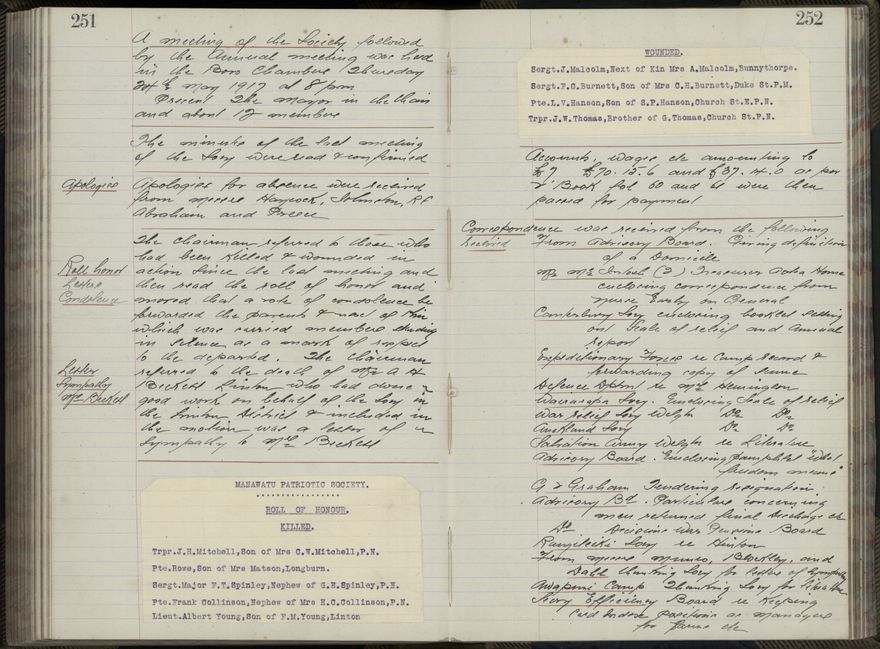 251
A meeting of the Society followed
by the Annual meeting was held
in the Boro Chambers Thursday
24th May 1917 at 8 pm
Present The Mayor in the Chair
and about 12 members
The minutes of the last meeting
of the Socy were read & confirmed
Apologies
Apologies for absence were received
from Messrs Haycock, Johnston, R F
Abraham and
Roll honor
Letters
Condolence
The Chairman referred to those who
had been killed & wounded in
action since the last meeting and
then read the roll of honor and
moved that a vote of condolence be
forwarded the parents & next of kin
which was carried members standing
in silence as a mark of respect
to the departed. The Chairman
Letter
Sympathy
Mrs Beckett
referred to the death of Mr A H
Beckett Linton who had done
good work on behalf of the Socy in
the Linton District & included in
the motion was a letter of
Sympathy to Mrs Beckett
MANAWATU PATRIOTIC SOCIETY.
ROLL OF HONOUR.
KILLED.
Trpr.J.H.Mitchell,Son of Mrs C.W.Mitchell,P.N.
Pte.Rowe,Son of Mrs Matson,Longburn.
Sergt.Major F.T.Spinley,Nephew of G.E.Spinley,P.N.
Pte.Frank Collinson,Nephew of Mrs H.C.Collinson,P.N.
Lieut.Albert Young,Son of F.M.Young,Linton
252
WOUNDED.
Sergt.J.Malcolm,Next of Kin Mrs A.Malcolm,Bunnythorpe.
Sergt.F.C.Burnett,Son of Mrs C.H.Burnett,Duke St.P.M.
Pte.L.V.Hanson,Son of S.P.Hanson,Church St.E.P.N.
Trpr.J.W.Thomas,Brother of G.Thomas,Church St.P.N.
Accounts, wages etc amounting to
£7 £70.15.6 and £37.14.0 as per
Book fol 60 and 61 were then
passed for payment
Correspondence was received from the following
received
From Advisory Board. Giving definition
of a Domicile
(2) Treasurer Home
enclosing correspondence from
Nurse in General
Canterbury Socy enclosing booklet setting
out Scale of relief and Annual
report
Expeditionary Forces re Camp Record &
forwarding copy of same
Defence Dptmt re Mrs Herrington
Wairarapa Socy. Enclosing Scale of relief
War relief Socy Welgtn Do Do
Auckland Socy Do Do
Salvation Army Welgtn re Literature
Advisory Board. Enclosing pamphlet "What
freedom means"
Graham Tendering resignation
Advisory Bd. Particulars concerning
men returned final discharge etc
Do War Pensions Board
Rangitikei Socy re
From Messrs Munro, Blockley, and
Dahl thanking Socy for letters of Sympathy
Awapuni Camp Thanking Socy for
Efficiency Board re keeping
positions as Managers
for farms etc